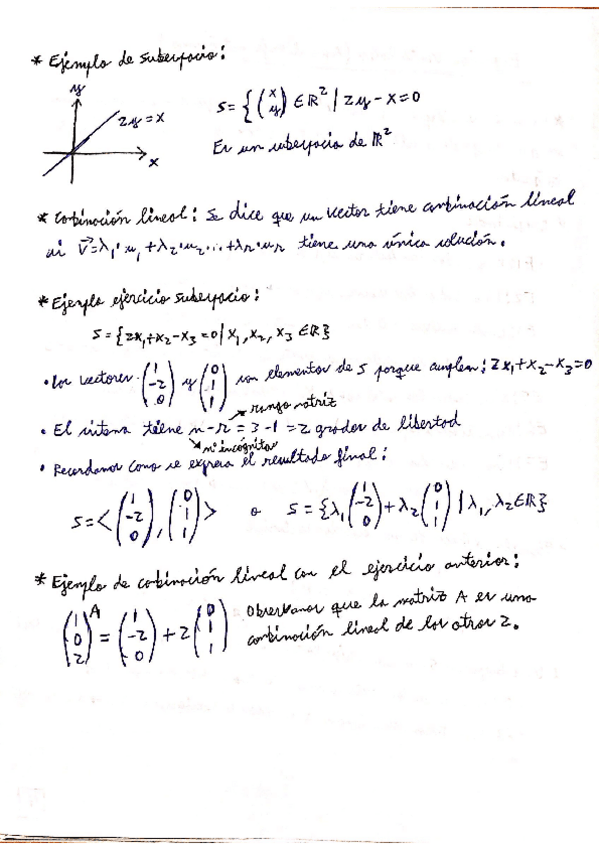 * Ejemplo de subespacio:
y
2y = x
x
S = { (x y) ∈ ℝ² | 2y - x = 0
Es un subespacio de ℝ²
* Cobinación lineal: Se dice que un vector tiene conbinación lineal
si v⃗ = λ₁·u₁ + λ₂·u₂ ... + λn·un tiene una única solución.
* Ejemplo ejercicio subespacio:
S = {2x₁ + x₂ - x₃ = 0 | x₁, x₂, x₃ ∈ ℝ}
• Los vectores (1 -2 0) y (0 1 1) son elementos de S porque cumplen: 2x₁ + x₂ - x₃ = 0
rango matriz
• El sistema tiene n - r = 3 - 1 = 2 grados de libertad
nº incógnitas
• Recordamos como se expresa el resultado final:
S = < (1 -2 0), (0 1 1) > o S = {λ₁ (1 -2 0) + λ₂ (0 1 1) | λ₁, λ₂ ∈ ℝ}
* Ejemplo de cobinación lineal con el ejercicio anterior:
(1 0 2) A = (1 -2 0) + 2 (0 1 1) Observamos que la matriz A es una
conbinación lineal de los otros 2.